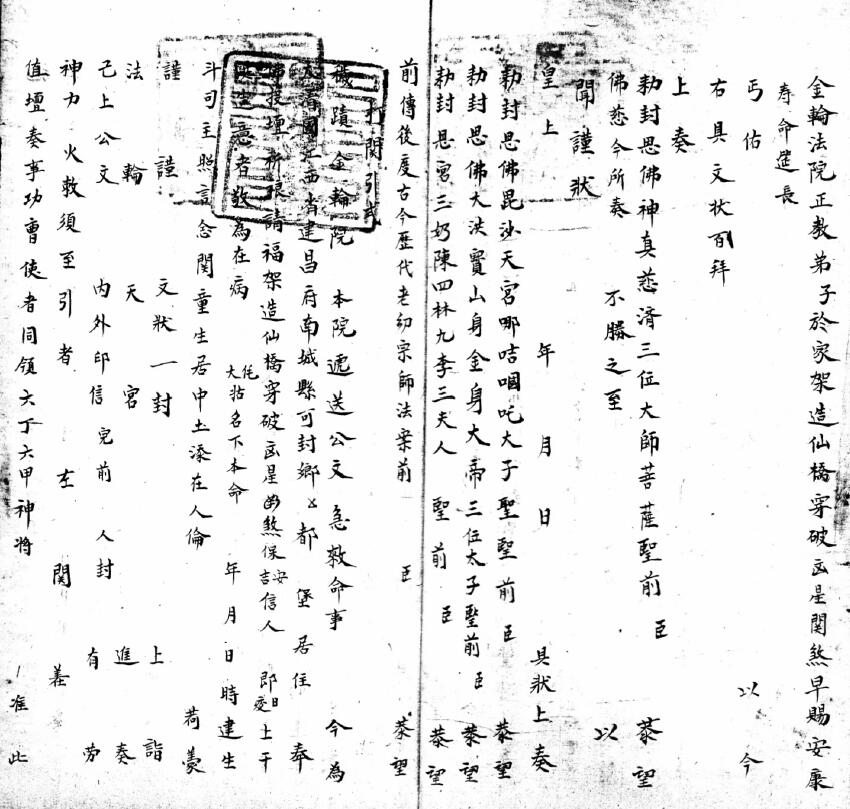 金輪法院正教弟子於家架造仙橋穿破凶星関煞早賜安康
寿命延長
丐佑 以今
右具文状百拜
上奏
勅封恩佛神真慈済三位大師菩薩聖前 臣 恭望
佛慈今所奏 不勝之至 以
聞謹狀
皇上 年 月 日 具狀上奏
勅封恩佛毘沙天宮哪咭啯吒大子聖聖前 臣 恭望
勅封恩佛大洪寶山身金身大帝三位太子聖前 臣 恭望
勅封恩宮三奶陳四林九李三夫人 聖前 臣 恭望
前傳後度古今歷代老幼宗師法案前 臣 恭望
打関引式
穢蹟金輪院 本院遞送公文 急救命事 今為
大清國江西省建昌府南城縣可封鄉 都 堡居住 奉
佛投壇祈禳請福架造仙橋穿破凶星凶煞保安吉信人 即日 上干
意者敬為在病 大 名下本命 年月日時建生
斗司主照言念関童生居中土添在人倫 荷蒙
謹謹 文狀一封 上詣
法輪 天宮 進奏
已上公文 内外印信完前 人封 有劳
神力 火救須至引者 左 関 差
值壇奏事功曹使者同領六丁六甲神將 准此